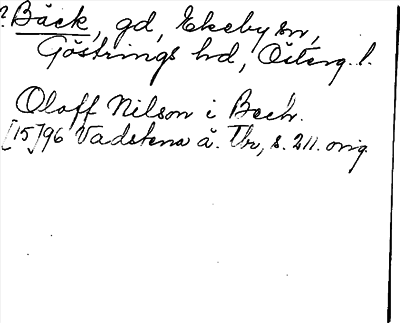 ? Bäck, gd, Ekeby sn,
Göstrings hd, Österg. l.
Oloff Nilson i Beck.
[15]96 Vadstena å. Tbr, s. 211. orig.